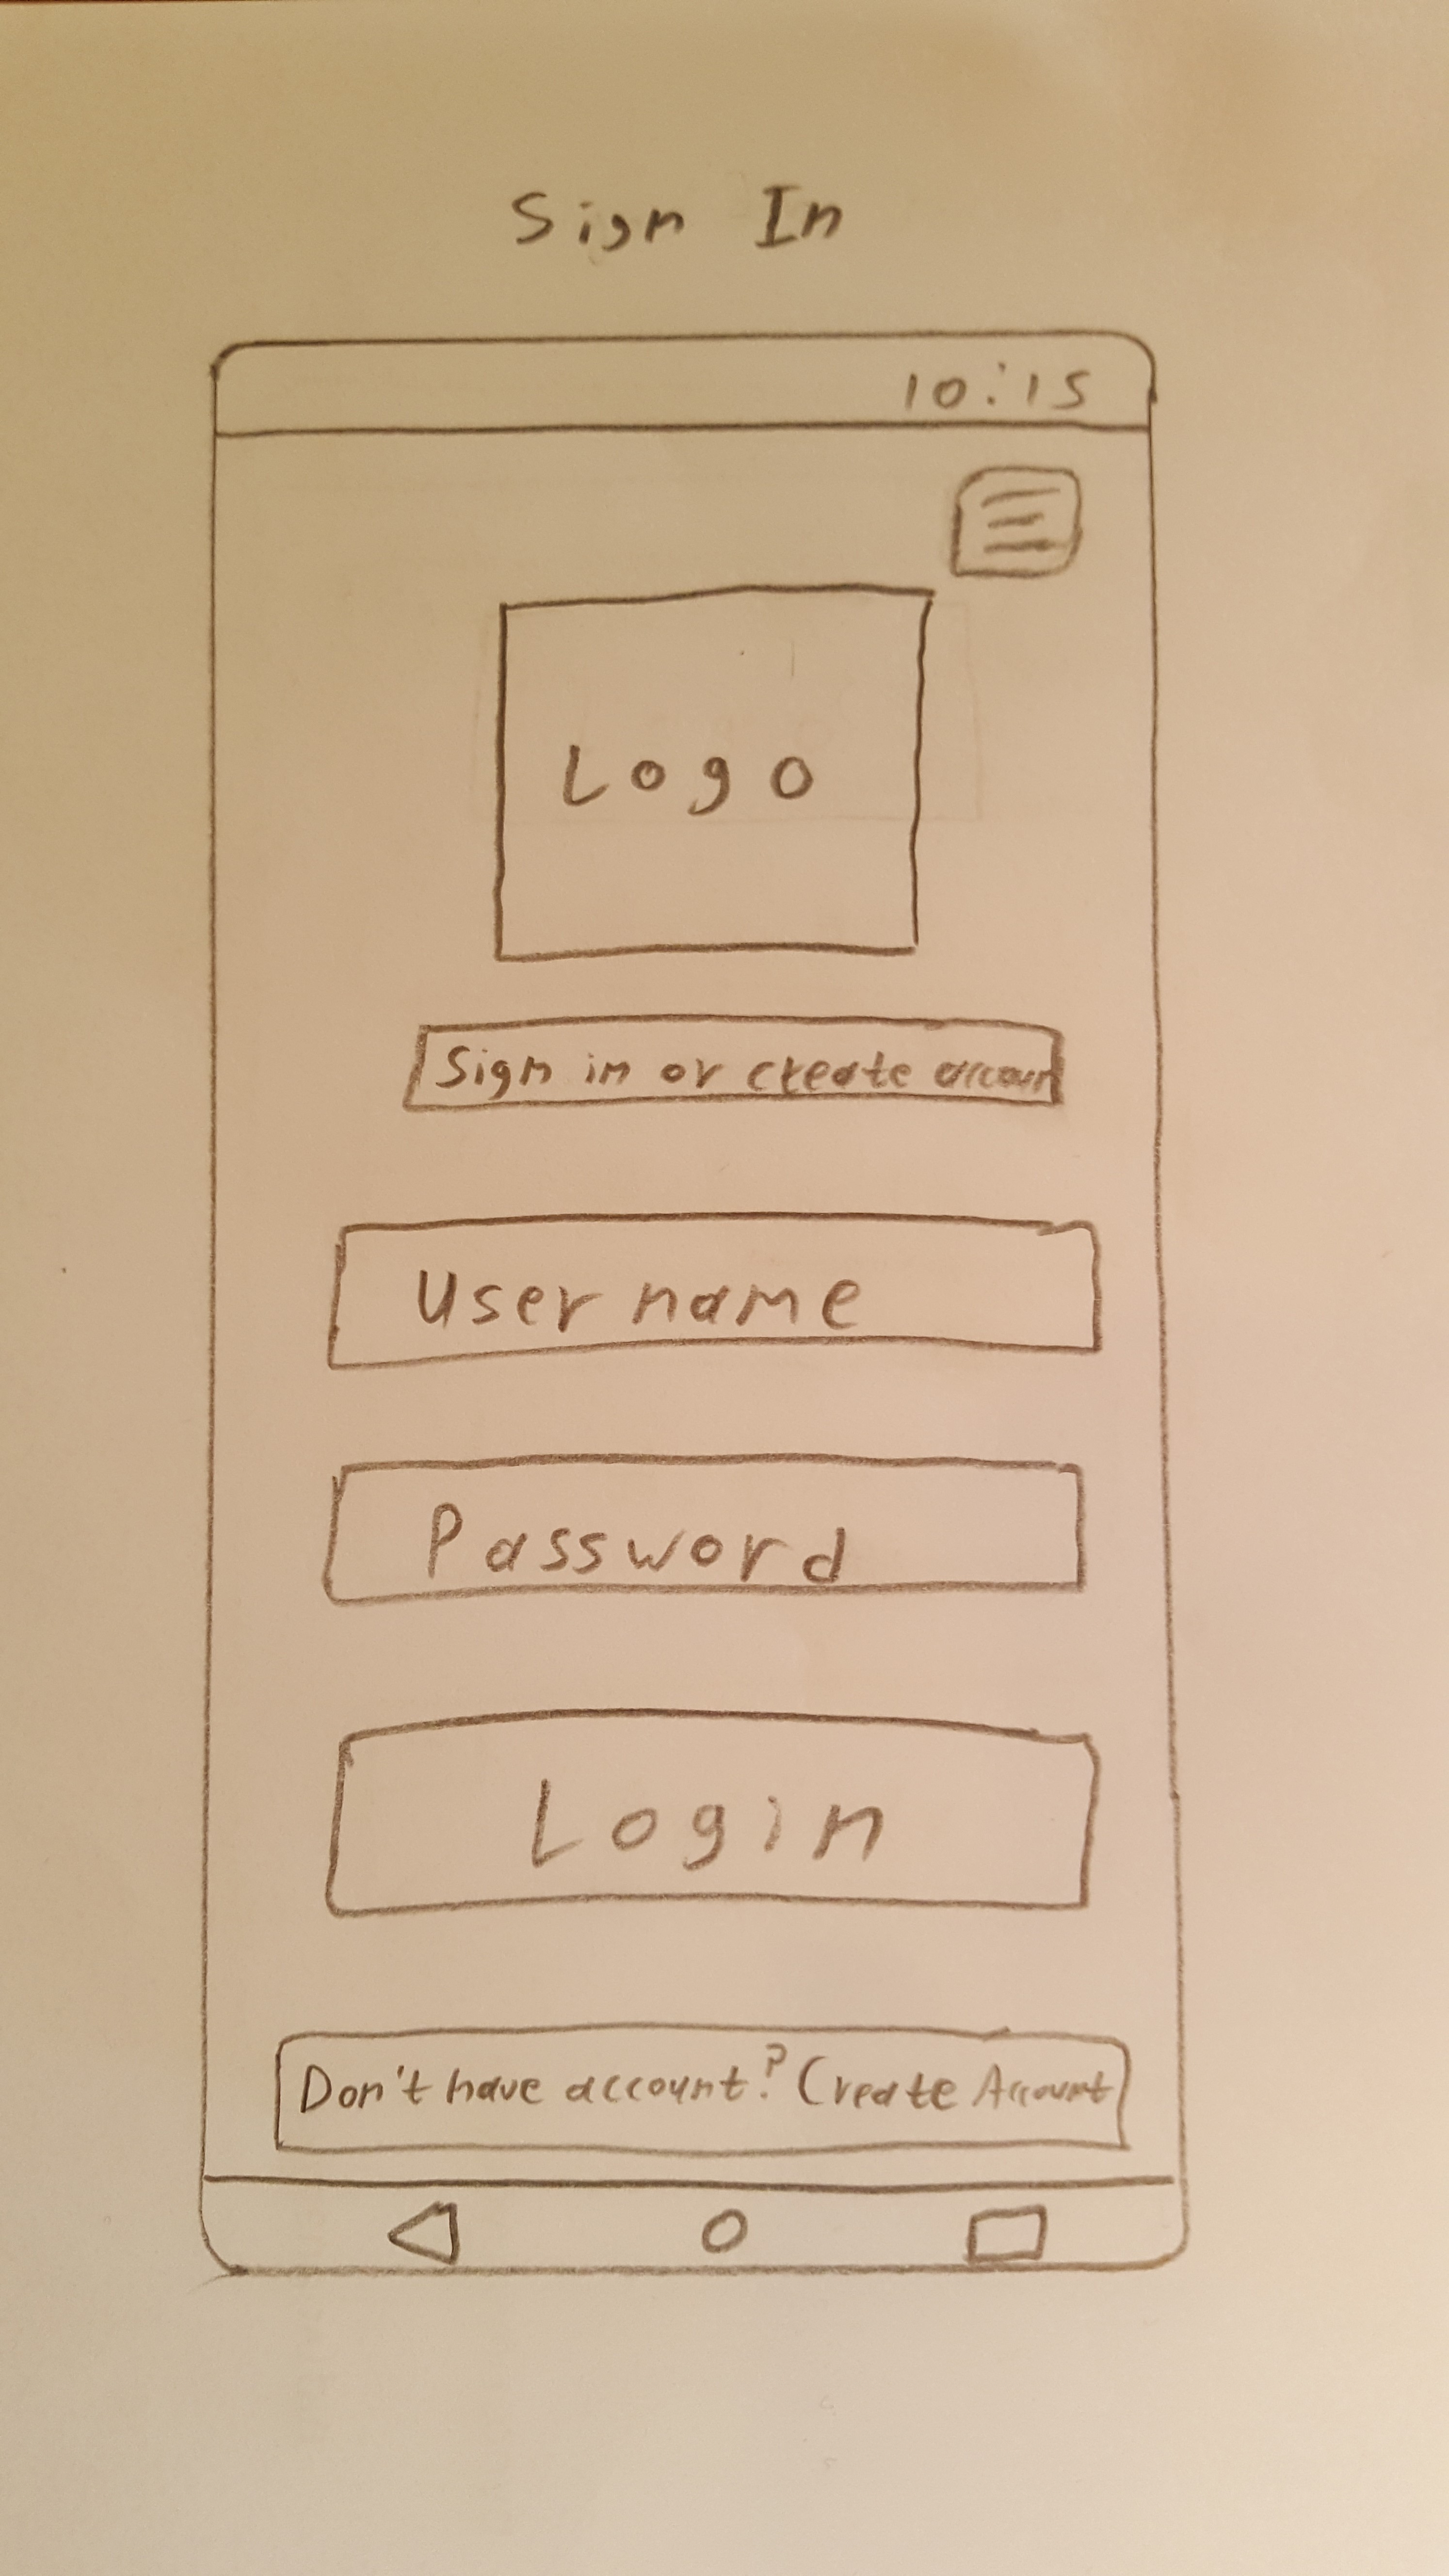 Sign In
10:15
Logo
Sign in or create accoun
User name
Password
Login
Don't have account? Create Account